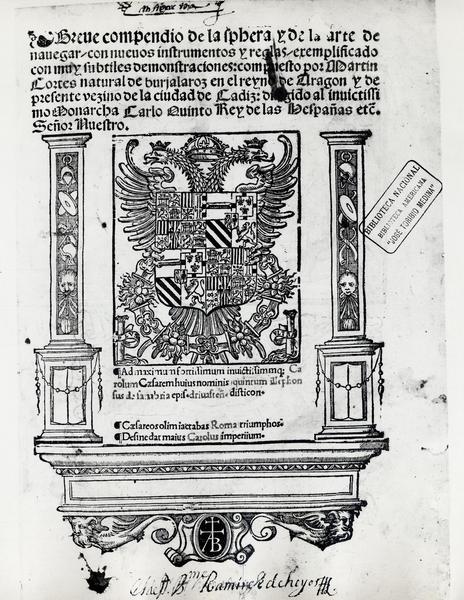 Breue compendio de la sphera y de la arte de
nauegar con nueuos instrumentos y reglas exemplificado
con muy subtiles demonstraciones: compuesto por Martin
Cortes natural de burjalaroz en el reyno de Aragon y de
presente vezino de la ciudad de Cadiz: dirigido al inuictissi
mo Monarcha Carlo Quinto Rey de las Hespañas etc.
Señor Nuestro.
BIBLIOTECA NACIONAL
BIBLIOTECA AMERICANA
"JOSÉ TORIBIO MEDINA"
¶Ad maximum fortissimum inuictissimumq; Ca
rolum Cæsarem huius nominis quintum
disticon.
¶Cæsareos olim iactabas Roma triumphos.
¶Desine dat maius Carolus imperiium.
B